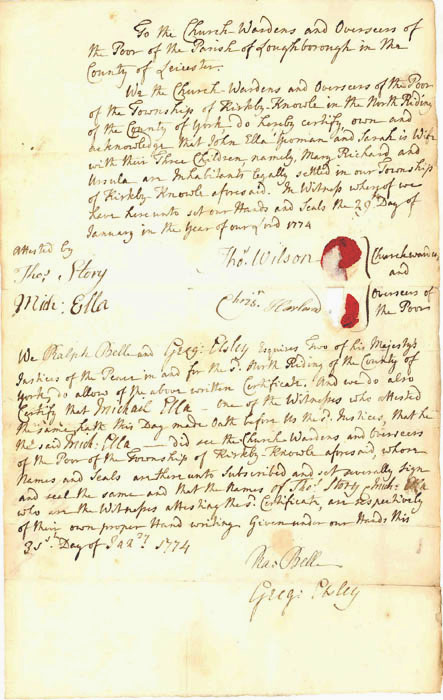 To the Church Wardens and Overseers of
the Poor of the Parish of Loughborough in the
County of Leicester.
We the Church Wardens and Overseers of the Poor
of the Township of Kirkby Knowle in the North Riding
of the County of York do hereby certify own and
acknowledge that John Ella Yeoman and Sarah is Wife
with their Three Children, namely, Mary Richard and
Ursula are Inhabitants legally settled in our Township
of Kirkby Knowle aforesaid. In Witness whereof we
have hereunto set our Hands and Seals the 29 Day of
January in the Year of our Lord 1774
Attested by
Thos. Story
Mich: Ella
Thos. Wilson
Chrisr. Harland
Churchwardens
and
Overseers of
the Poor
We Ralph Bell and Greg: Elsley Esquires Two of his Majesty's
Justices of the Peace in and for the sd. North Riding of the County of
York, do allow of the above written Certificate. And we do also
Certify that Michael Ella – one of the Witnesses who attested
the same hath this Day made Oath before Us the sd. Justices, that he
the said Mich: Ella – did see the Church Wardens and Overseers
of the Poor of the Township of Kirkby Knowle aforesaid, whose
Names and Seals are thereunto Subscribed and set severally sign
and seal the same and that the Names of Thos. Story Mich: Ella
who are the Witnesses attesting the sd. Certificate, are respectively
of their own proper Hand writing Given under our Hands this
Day of Janry. 1774
Ra: Bell
Greg: Elsley